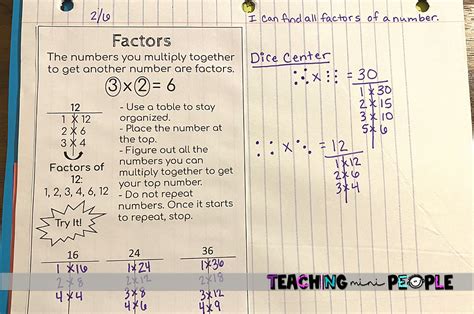 2/6
I can find all factors of a number.
Factors
The numbers you multiply together
to get another number are factors.
3 x 2 = 6
12
1 X 12
2 X 6
3 X 4
Factors of
12:
1, 2, 3, 4, 6, 12
Try It!
- Use a table to stay
organized.
- Place the number at
the top.
- Figure out all the
numbers you can
multiply together to get
your top number.
- Do not repeat
numbers. Once it starts
to repeat, stop.
16
1 x 16
2 x 8
4 x 4
24
1 x 24
2 x 12
3 x 8
4 x 6
36
1 x 36
2 x 18
3 x 12
4 x 9
Dice Center
x = 30
1 x 30
2 x 15
3 x 10
5 x 6
x = 12
1 x 12
2 x 6
3 x 4
TEACHING mini PEOPLE